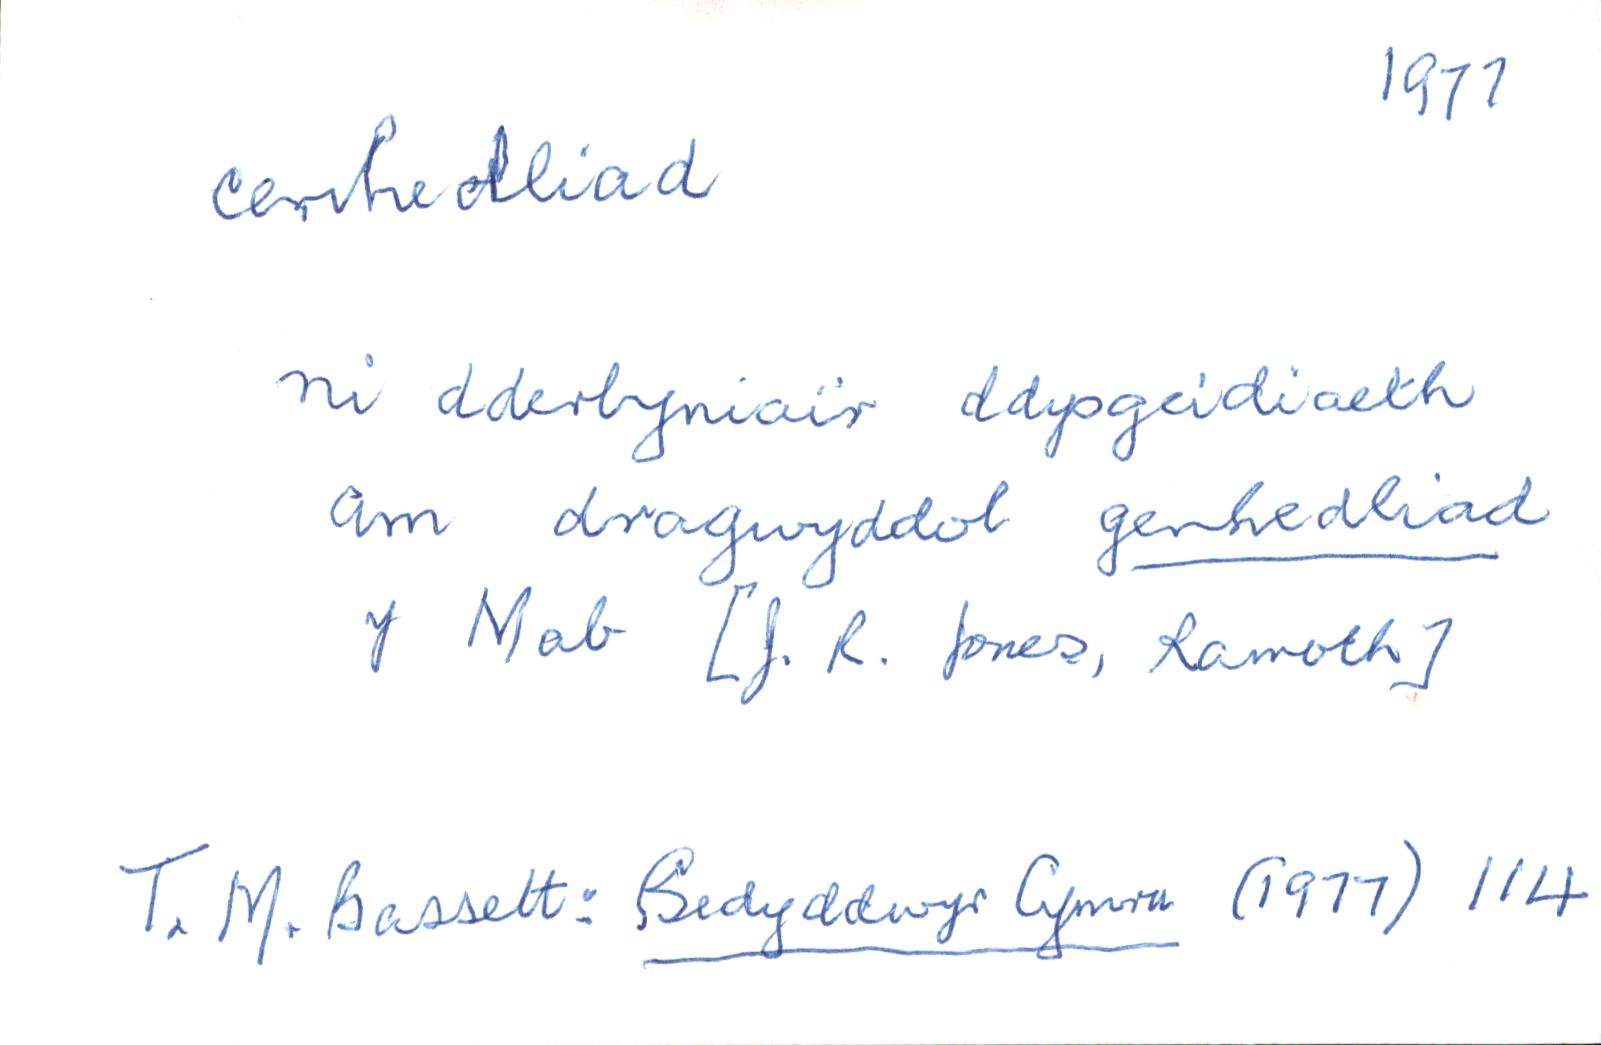 1977
cenhedliad
ni dderbyniair ddysgeidiaeth
am dragwyddol genhedliad
y Mab [J. R. Jones, Ramoth]
T. M. Bassett: Bedyddwyr Cymru (1977) 114